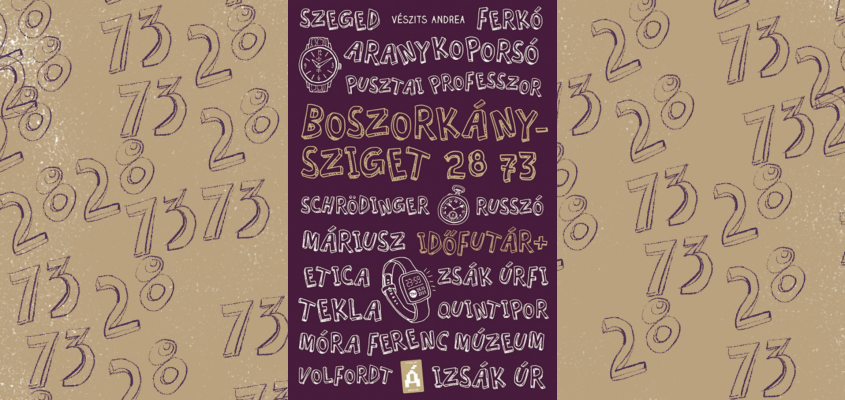 SZEGED VÉSZITS ANDREA FERKÓ
ARANYKOPORSÓ
PUSZTAI PROFESSZOR
BOSZORKÁNY-
SZIGET 28 73
SCHRÖDINGER RUSSZÓ
MÁRIUSZ IDŐFUTÁR+
ETICA 23:59 ZSÁK ÚRFI
TEKLA QUINTIPOR
MÓRA FERENC MÚZEUM
VOLFORDT Á IZSÁK ÚR
73 28
73 28
28 28
73 73
73 28
73 28
73
28
28
28 73
73 28
73 28
28 73